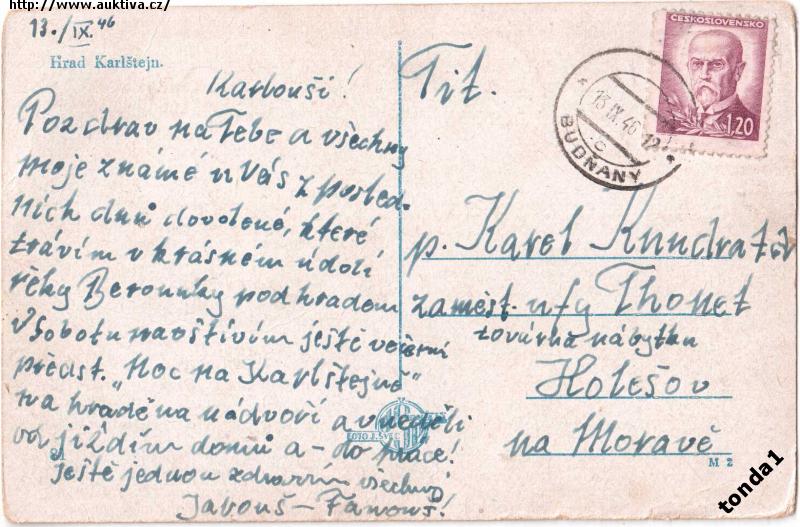 http://www.auktiva.cz/
13./IX. 46
Hrad Karlštejn.
Karlouši!
Pozdrav na Tebe a všechny
moje známé u Vás z posled-
ních dnů dovolené, které
trávím v krásném údolí
řeky Berounky pod hradem
V sobotu navštívím ještě večerní
předst. „Noc na Karlštejně"
na hradě na nádvoří a v neděli
od jíždím domů a - do práce!
Ještě jednou zdravím všechny
Fanouš!
Tit.
p. Karel Kundrata
zaměst. u fy Thonet
továrna nábytku
Holešov
na Moravě
ČESKOSLOVENSKO
1,20
13.IX.46
BUDŇANY
c
FOTO J. ŠVEC
M 2
tonda1